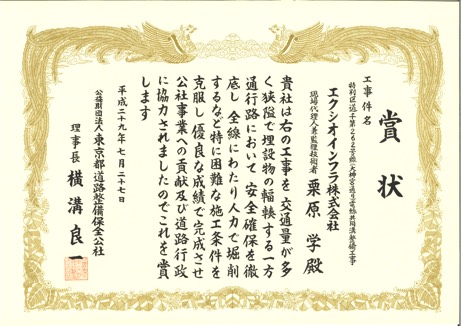 賞状
工事件名
特別区道千第262号線(大神宮通り)電線共同溝整備工事
エクシオインフラ株式会社
現場代理人兼監理技術者
栗原 学 殿
貴社は右の工事を交通量が多
く狭隘で埋設物の輻輳する一方
通行路において安全確保を徹
底し全線にわたり人力で掘削
するなど特に困難な施工条件を
克服し優良な成績で完成させ
公社事業への貢献及び道路行政
に協力されましたのでこれを賞
します
平成二十九年七月二十七日
公益財団法人東京都道路整備保全公社
理事長 横溝良一